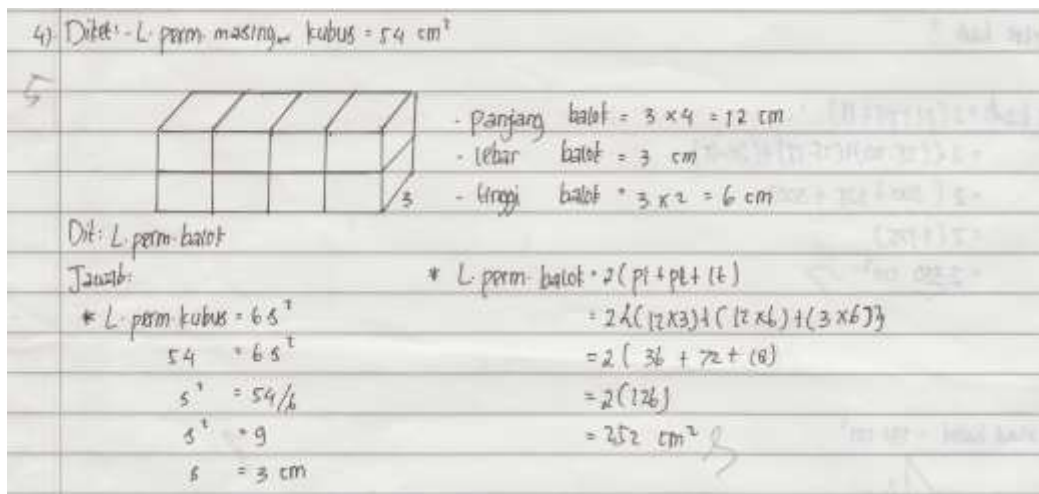 4) Diket: - L. perm. masing" kubus = 54 cm²
5
- Panjang balok = 3 × 4 = 12 cm
- lebar balok = 3 cm
- tinggi balok = 3 x 2 = 6 cm
3
Dit: L. perm. balok
Jawab:
* L. perm. kubus = 6 s²
54 = 6 s²
s² = 54/6
s² = 9
s = 3 cm
* L. perm. balok = 2 (pl + pt + lt)
= 2 {(12x3) + (12x6) + (3x6)}
= 2 ( 36 + 72 + 18)
= 2 (126)
= 252 cm²